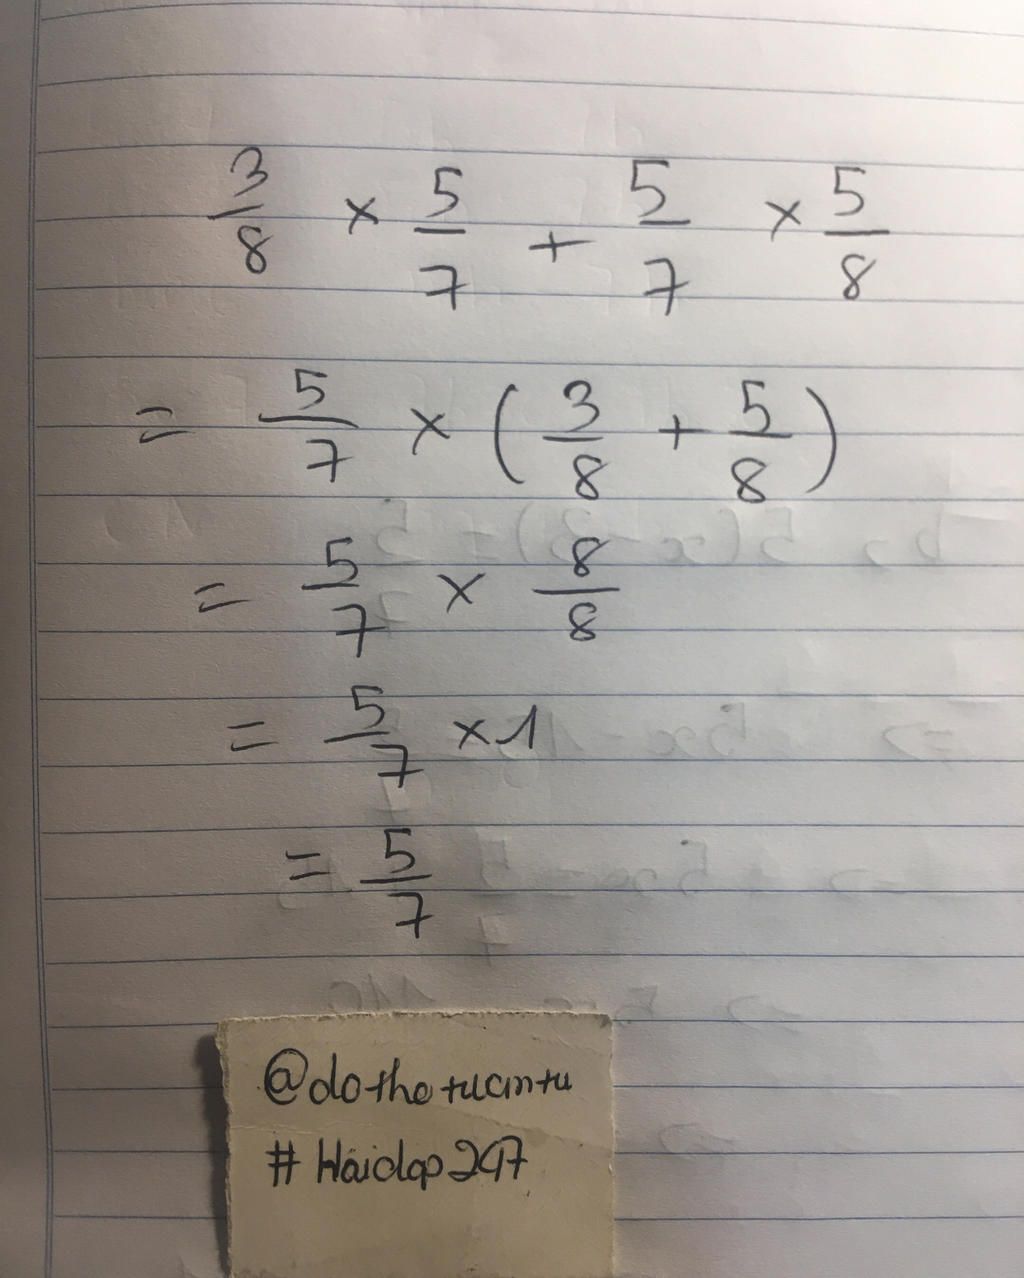 3/8 × 5/7 + 5/7 × 5/8
= 5/7 × (3/8 + 5/8)
= 5/7 × 8/8
= 5/7 × 1
= 5/7
@dothetuantu
# Hoidap247